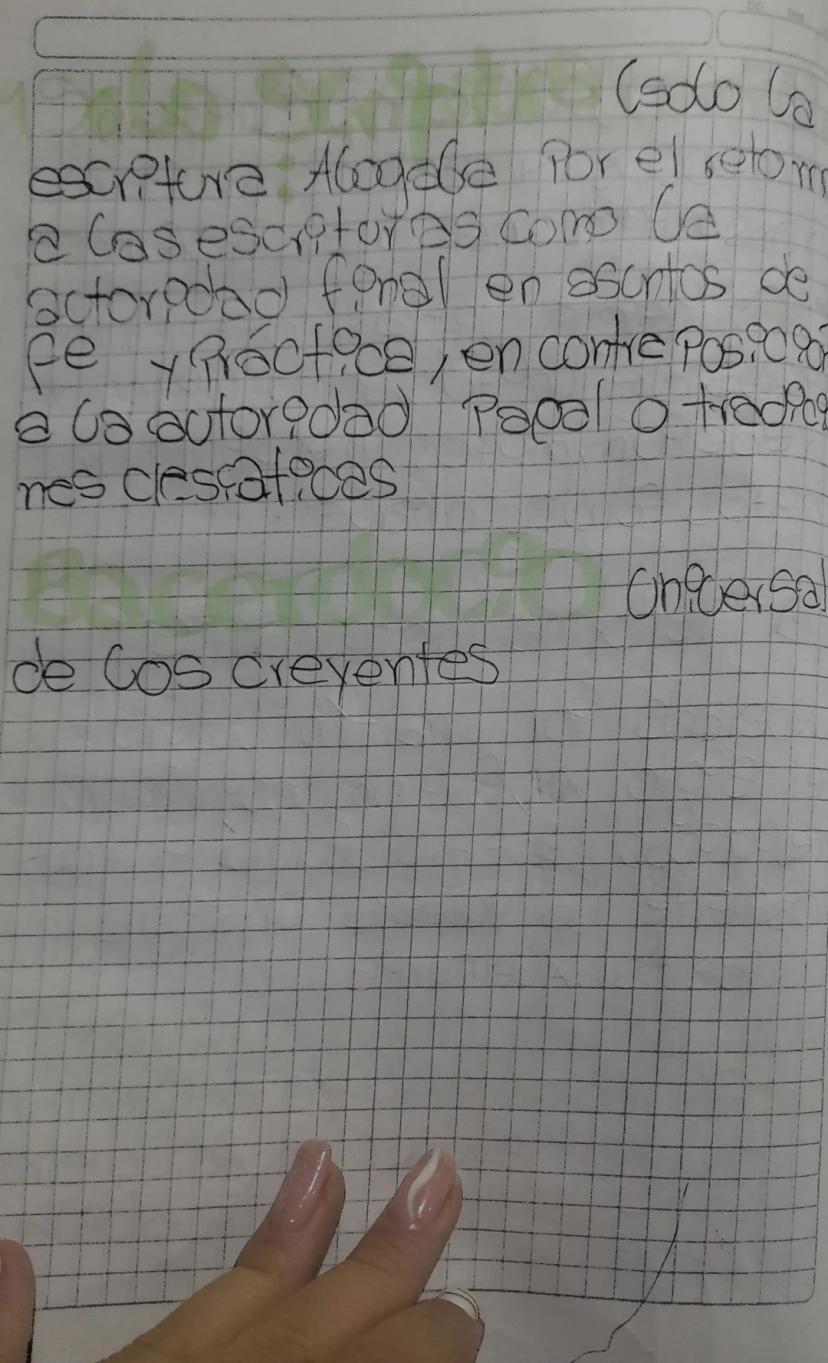 (solo la
escritura: Abogaba Por el retorn
a las escrituras como la
actoridad final en asuntos de
fe y Práctica, en contra posición
a la autoridad Papal o tradicio
nes clesiaticas
Sacerdocio Universal
de los creyentes